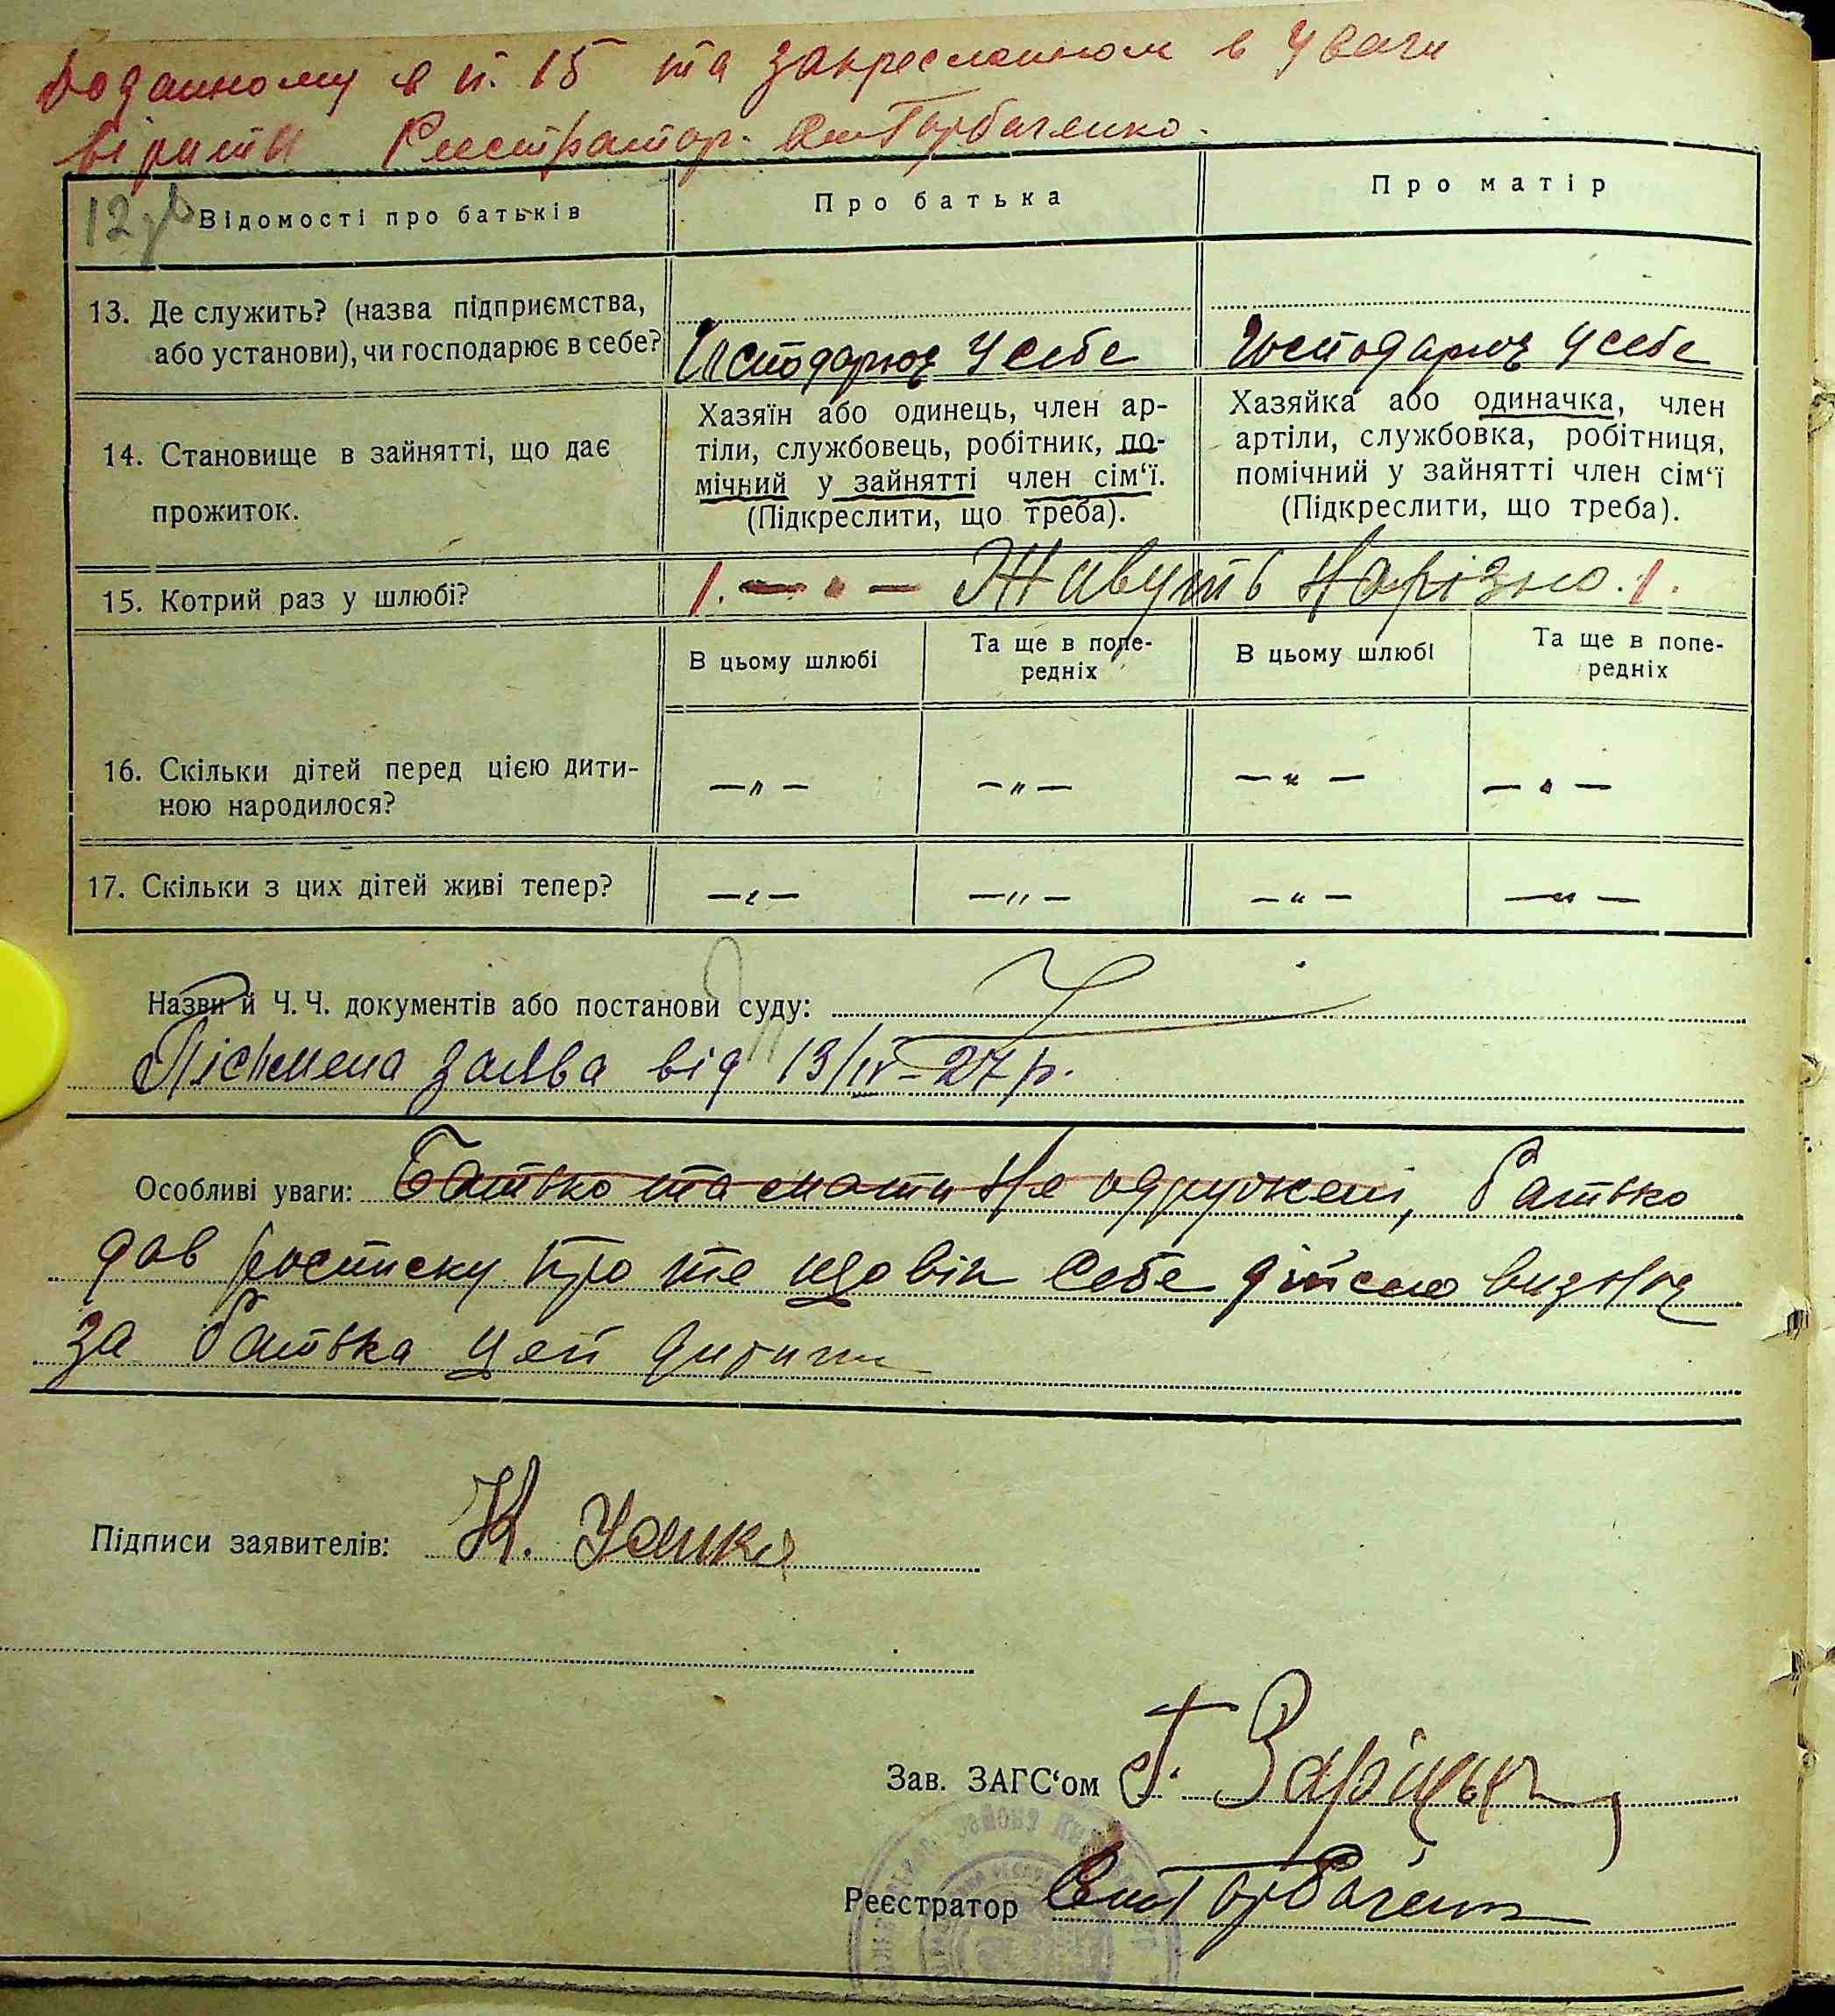 Доданному в п. 15 та закресленном в Уваги
вірить Реєстратор. Горбаченко.
12 зв
Відомості про батьків
Про батька
Про матір
13. Де служить? (назва підприємства,
або установи), чи господарює в себе?
Господарює у себе
Господарює у себе
14. Становище в зайнятті, що дає
прожиток.
Хазяїн або одинець, член ар-
тіли, службовець, робітник, по-
мічний у зайнятті член сім‘ї.
(Підкреслити, що треба).
Хазяйка або одиначка, член
артіли, службовка, робітниця,
помічний у зайнятті член сім‘ї
(Підкреслити, що треба).
15. Котрий раз у шлюбі?
1. — " — Живуть нарізно. 1.
В цьому шлюбі
Та ще в попе-
редніх
В цьому шлюбі
Та ще в попе-
редніх
16. Скільки дітей перед цією дити-
ною народилося?
— " — — " — — " — — " —
17. Скільки з цих дітей живі тепер?
— " — — " — — " — — " —
Назви й Ч. Ч. документів або постанови суду:
Пісьмена заява від 13/IV-27 р.
Особливі уваги: Батько та мати не одружені, батько
дав росписку про те що він себе дійсно визнає
за батька цей дитини
Підписи заявителів: К.
Зав. ЗАГС‘ом
Реєстратор Горбаченко